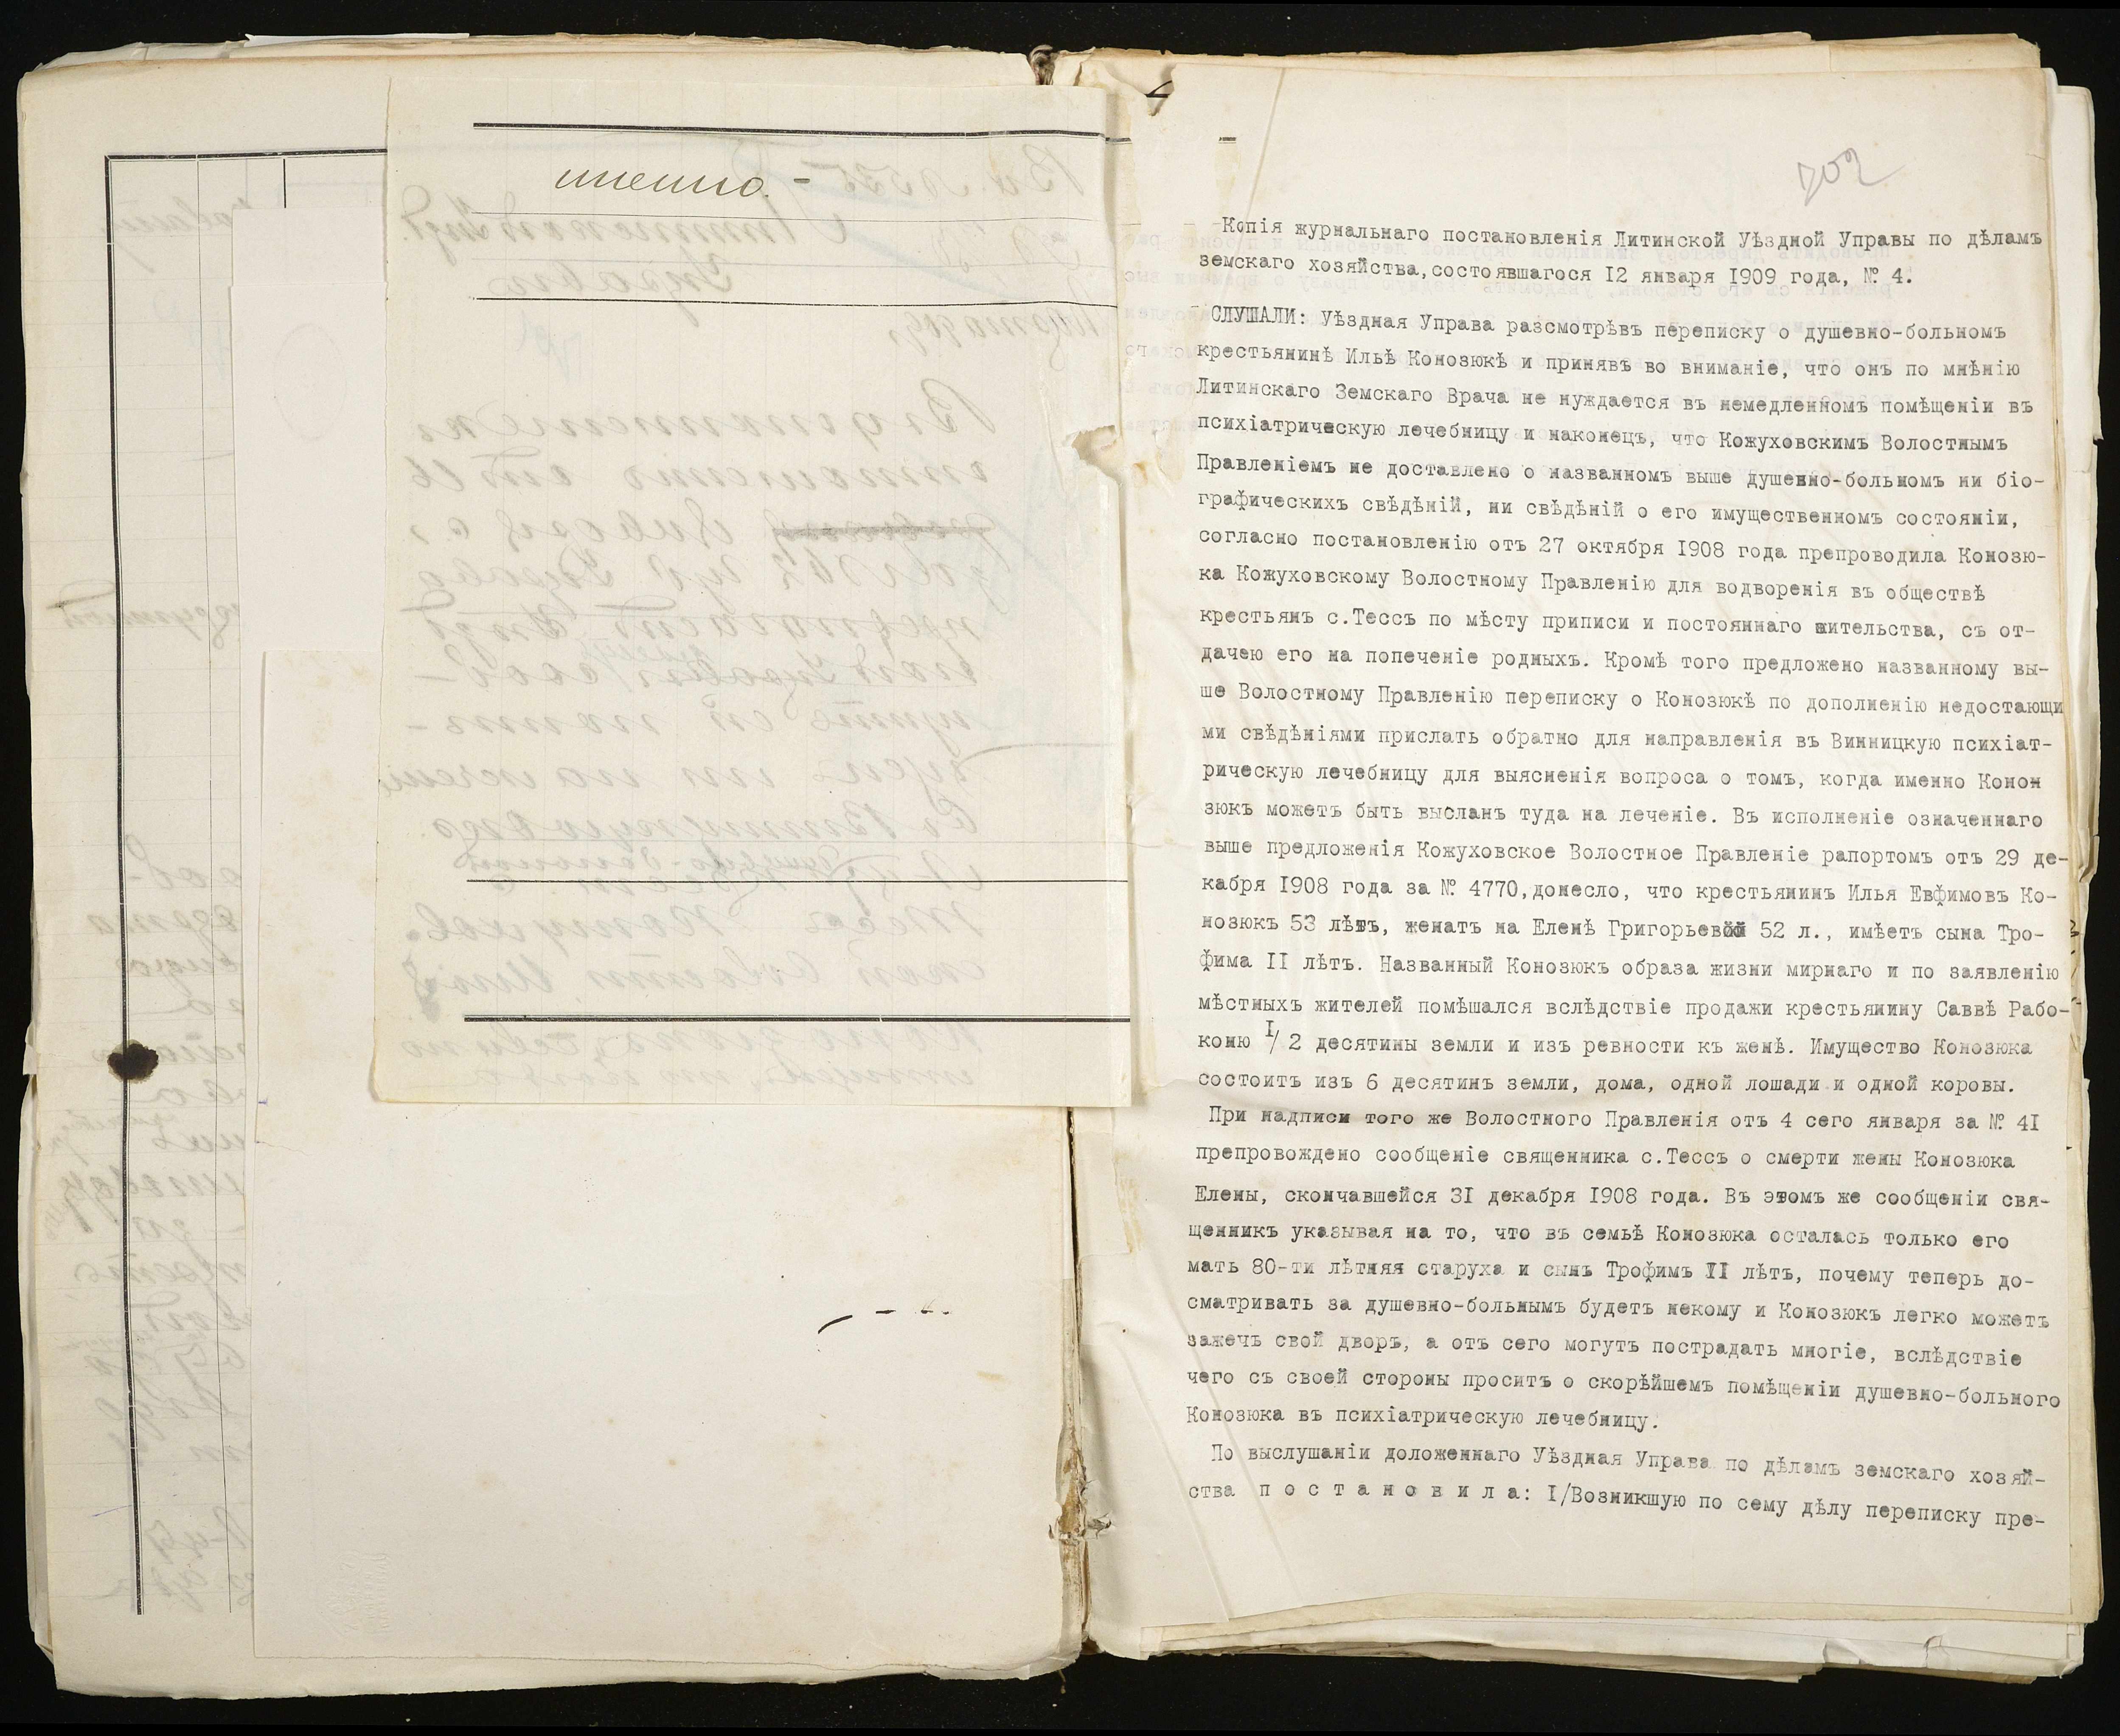 именно. -
702
Копія журнальнаго постановленія Литинской Уѣздной Управы по дѣламъ
земскаго хозяйства, состоявшагося I2 января I909 года, № 4.
СЛУШАЛИ: Уѣздная Управа разсмотрѣвъ переписку о душевно-больномъ
крестьянинѣ Ильѣ Конозюкѣ и принявъ во вниманіе, что онъ по мнѣнію
Литинскаго Земскаго Врача не нуждается въ немедленномъ помѣщеніи въ
психіатрическую лечебницу и наконецъ, что Кожуховскимъ Волостнымъ
Правленіемъ не доставлено о названномъ выше душевно-больномъ ни біо-
графическихъ свѣдѣній, ни свѣдѣній о его имущественномъ состояніи,
согласно постановленію отъ 27 октября I908 года препроводила Конозю-
ка Кожуховскому Волостному Правленію для водворенія въ обществѣ
крестьянъ с.Тессъ по мѣсту приписи и постояннаго жительства, съ от-
дачею его на попеченіе родныхъ. Кромѣ того предложено названному вы-
ше Волостному Правленію переписку о Конозюкѣ по дополненію недостающи
ми свѣдѣніями прислать обратно для направленія въ Винницкую психіат-
рическую лечебницу для выясненія вопроса о томъ, когда именно Коно
зюкъ можетъ быть высланъ туда на леченіе. Въ исполненіе означеннаго
выше предложенія Кожуховское Волостное Правленіе рапортомъ отъ 29 де-
кабря I908 года за № 4770, донесло, что крестьянинъ Илья Евфимовъ Ко-
нозюкъ 53 лѣтъ, женатъ на Еленѣ Григорьевой 52 л., имѣетъ сына Тро-
фима II лѣтъ. Названный Конозюкъ образа жизни мирнаго и по заявленію
мѣстныхъ жителей помѣшался вслѣдствіе продажи крестьянину Саввѣ Рабо-
коню I/2 десятины земли и изъ ревности къ женѣ. Имущество Конозюка
состоитъ изъ 6 десятинъ земли, дома, одной лошади и одной коровы.
При надписи того же Волостного Правленія отъ 4 сего января за № 4I
препровождено сообщеніе священника с.Тессъ о смерти жены Конозюка
Елены, скончавшейся 3I декабря I908 года. Въ этомъ же сообщеніи свя-
щенникъ указывая на то, что въ семьѣ Конозюка осталась только его
мать 80-ти лѣтняя старуха и сынъ Трофимъ II лѣтъ, почему теперь до-
сматривать за душевно-больнымъ будетъ некому и Конозюкъ легко можетъ
зажечь свой дворъ, а отъ сего могутъ пострадать многіе, вслѣдствіе
чего съ своей стороны проситъ о скорѣйшемъ помѣщеніи душевно-больного
Конозюка въ психіатрическую лечебницу.
По выслушаніи доложеннаго Уѣздная Управа по дѣламъ земскаго хозяй-
ства п о с т а н о в и л а: I/Возникшую по сему дѣлу переписку пре-